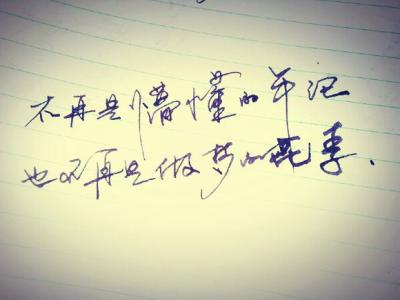 不再是懵懂的年纪
也不再是做梦的花季.